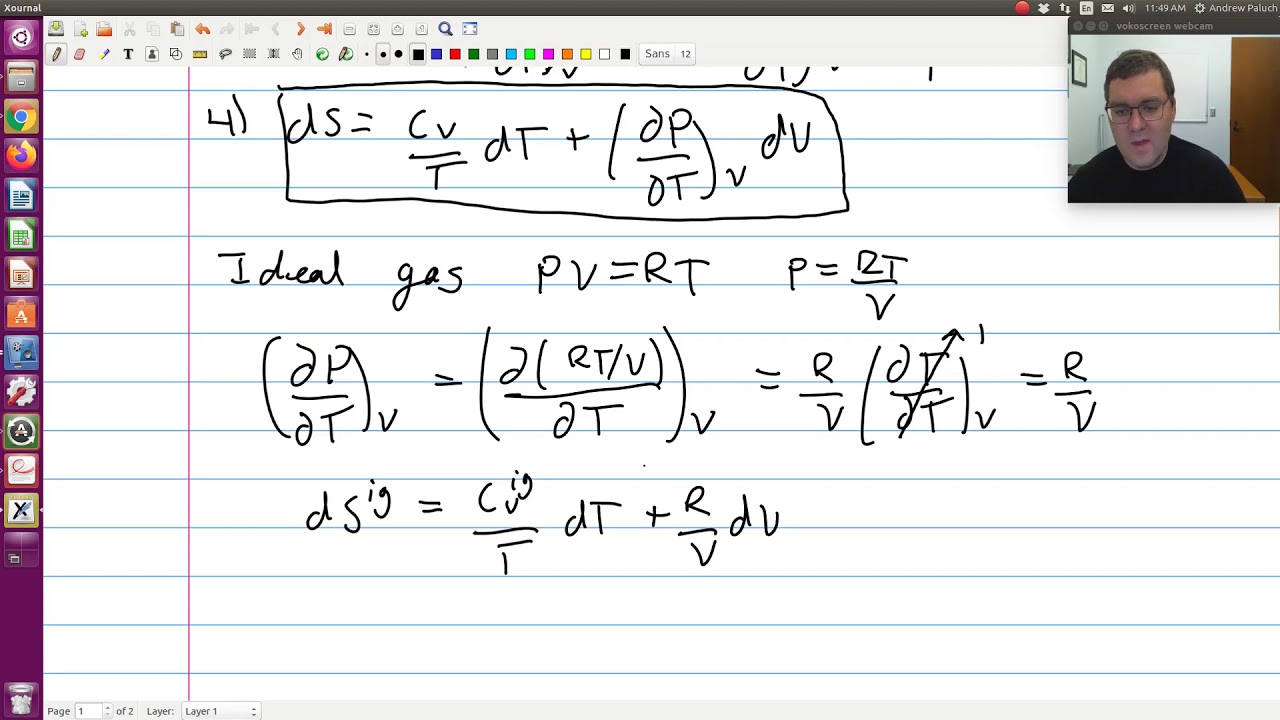 Xournal
En
11:49 AM
Andrew Paluch
vokoscreen webcam
T
Sans
12
4) dS = Cv/T dT + (∂P/∂T)_V dV
Ideal gas PV = RT P = RT/V
(∂P/∂T)_V = (∂(RT/V)/∂T)_V = R/V (∂T/∂T)_V 1 = R/V
dS^ig = Cv^ig/T dT + R/V dV
Page 1 of 2 Layer: Layer 1